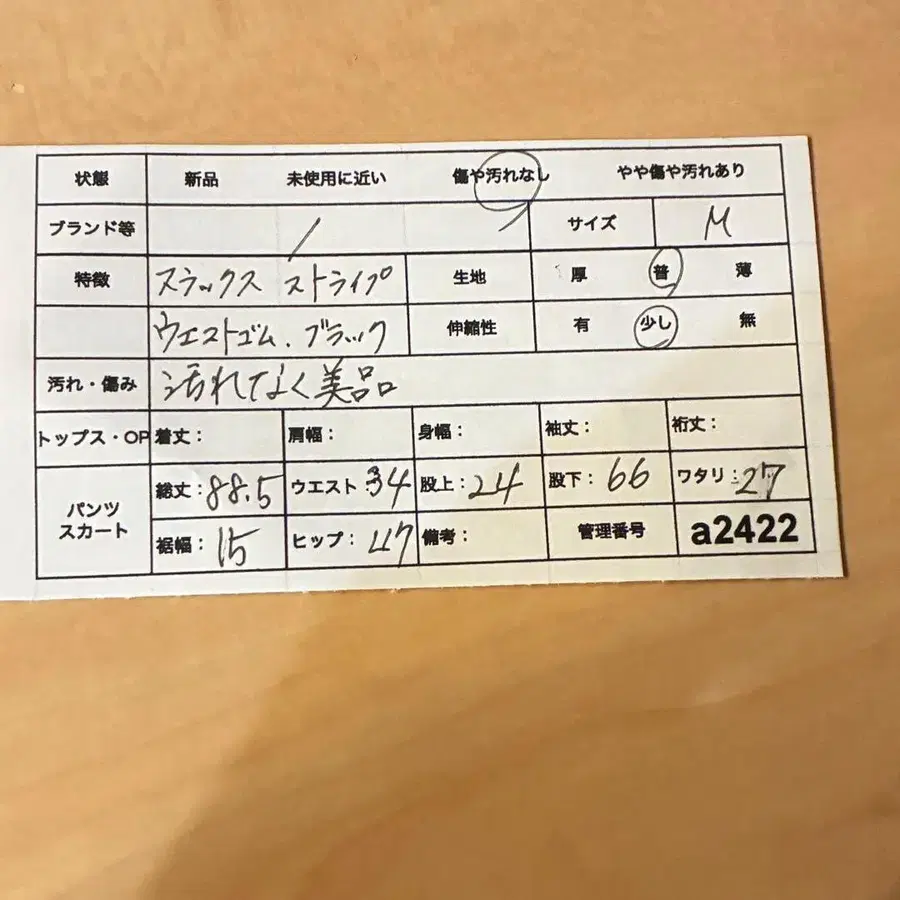 状態 新品 未使用に近い 傷や汚れなし やや傷や汚れあり
ブランド等 / サイズ M
特徴 スラックス ストライプ 生地 厚 普 薄
ウエストゴム、ブラック 伸縮性 有 少し 無
汚れ・傷み 汚れなく美品
トップス・OP 着丈: 肩幅: 身幅: 袖丈: 裄丈:
パンツ スカート 総丈:88.5 ウエスト:34 股上:24 股下:66 ワタリ:27
裾幅:15 ヒップ:47 備考: 管理番号 a2422